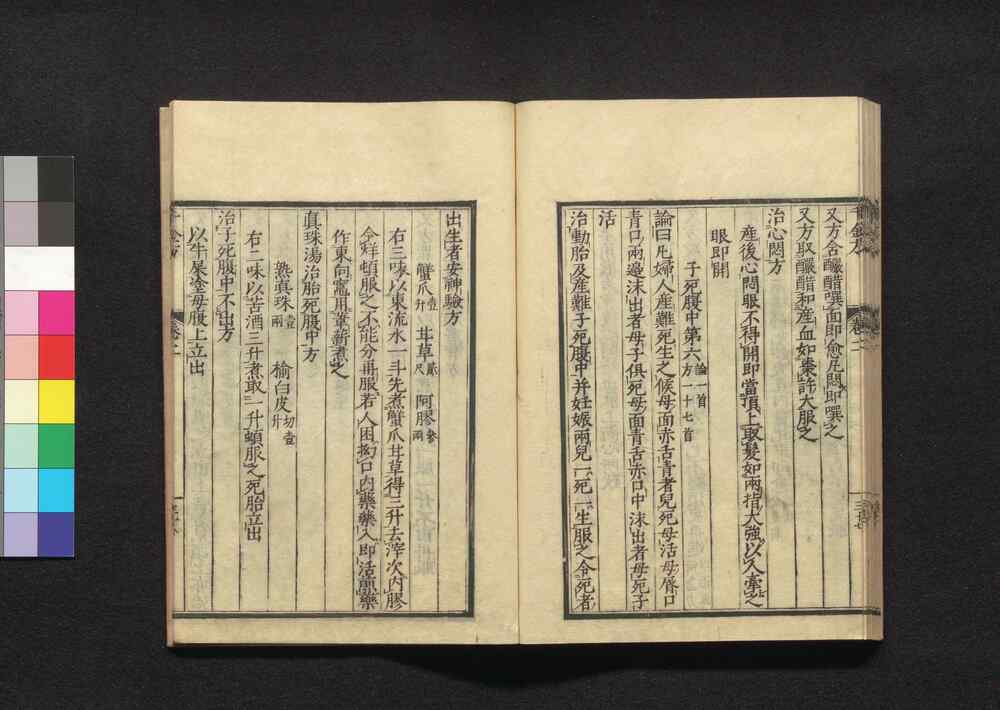 又方含釅醋噀面即愈凡悶即噀之
又方取釅醋和産血如棗許大服之
治心悶方
産後心悶眼不得開即當頂上取髮如兩指大強以人牽之
眼即開
子死腹中第六論一首方一十七首
論曰凡婦人産難死生之候母面赤舌青者兒死母活母脣口
青口兩邊沫出者母子俱死母面青舌赤口中沫出者母死子
活
治動胎及産難子死腹中并妊娠兩兒一死一生服之令死者
出生者安神驗方
蟹爪壹升 甘草貳尺 阿膠參兩
右三味以東流水一斗先煮蟹爪甘草得三升去滓次内膠
令烊頓服之不能分再服若人困拗口内藥藥入即活煎藥
作東向竈用葦薪煮之
真珠湯治胎死腹中方
熟真珠壹兩 榆白皮切壹升
右二味以苦酒三升煮取一升頓服之死胎立出
治子死腹中不出方
以牛屎塗母腹上立出